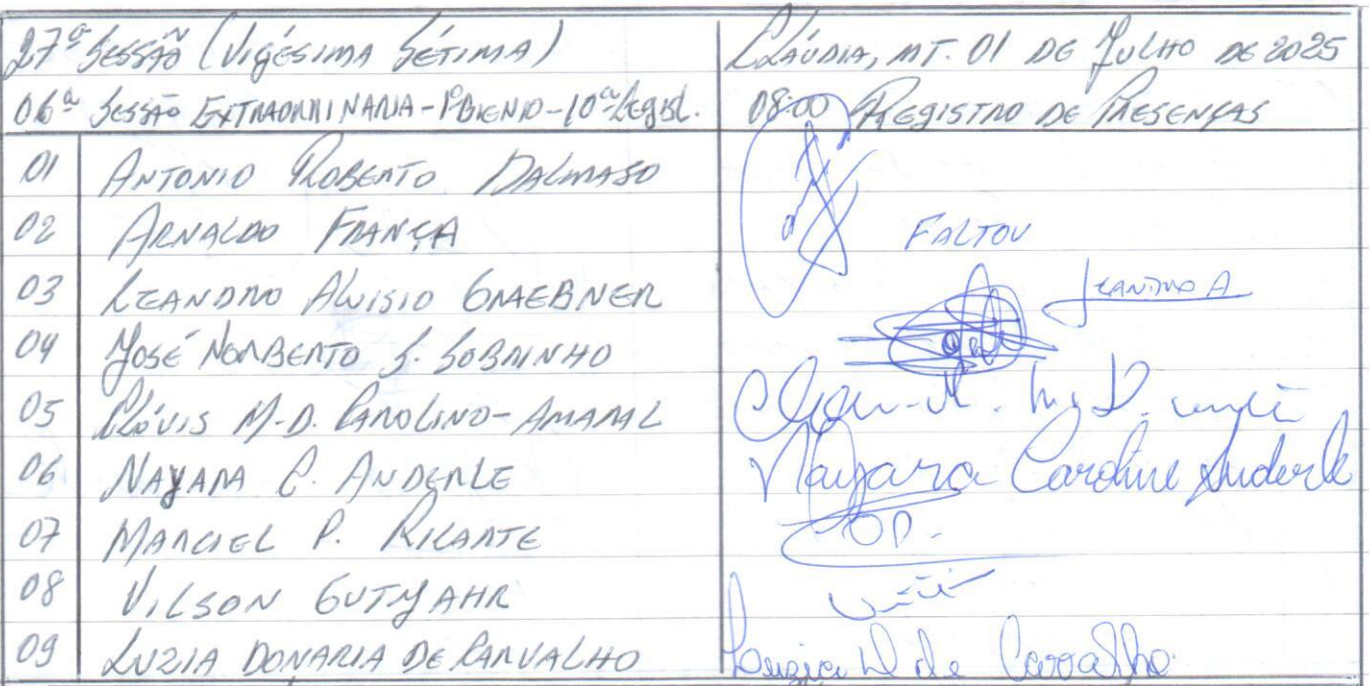 27ª Sessão (Vigésima Sétima)
Cláudia, MT. 01 de Julho de 2025
06ª Sessão Extraordinária - 1º Biênio - 10ª Legisl.
08:00 Registro de Presenças
01 Antonio Roberto Dalmaso
02 Arnaldo França FALTOU
03 Leandro Aluisio Graebner Leandro A
04 José Norberto S. Sobrinho
05 Clóvis M.D. Carolino-Amaral
06 Nayara C. Anderle Nayara Caroline Anderle
07 Marciel P. Ricarte
08 Vilson Gutjahr
09 Luzia Donaria de Carvalho Luzia D de Carvalho